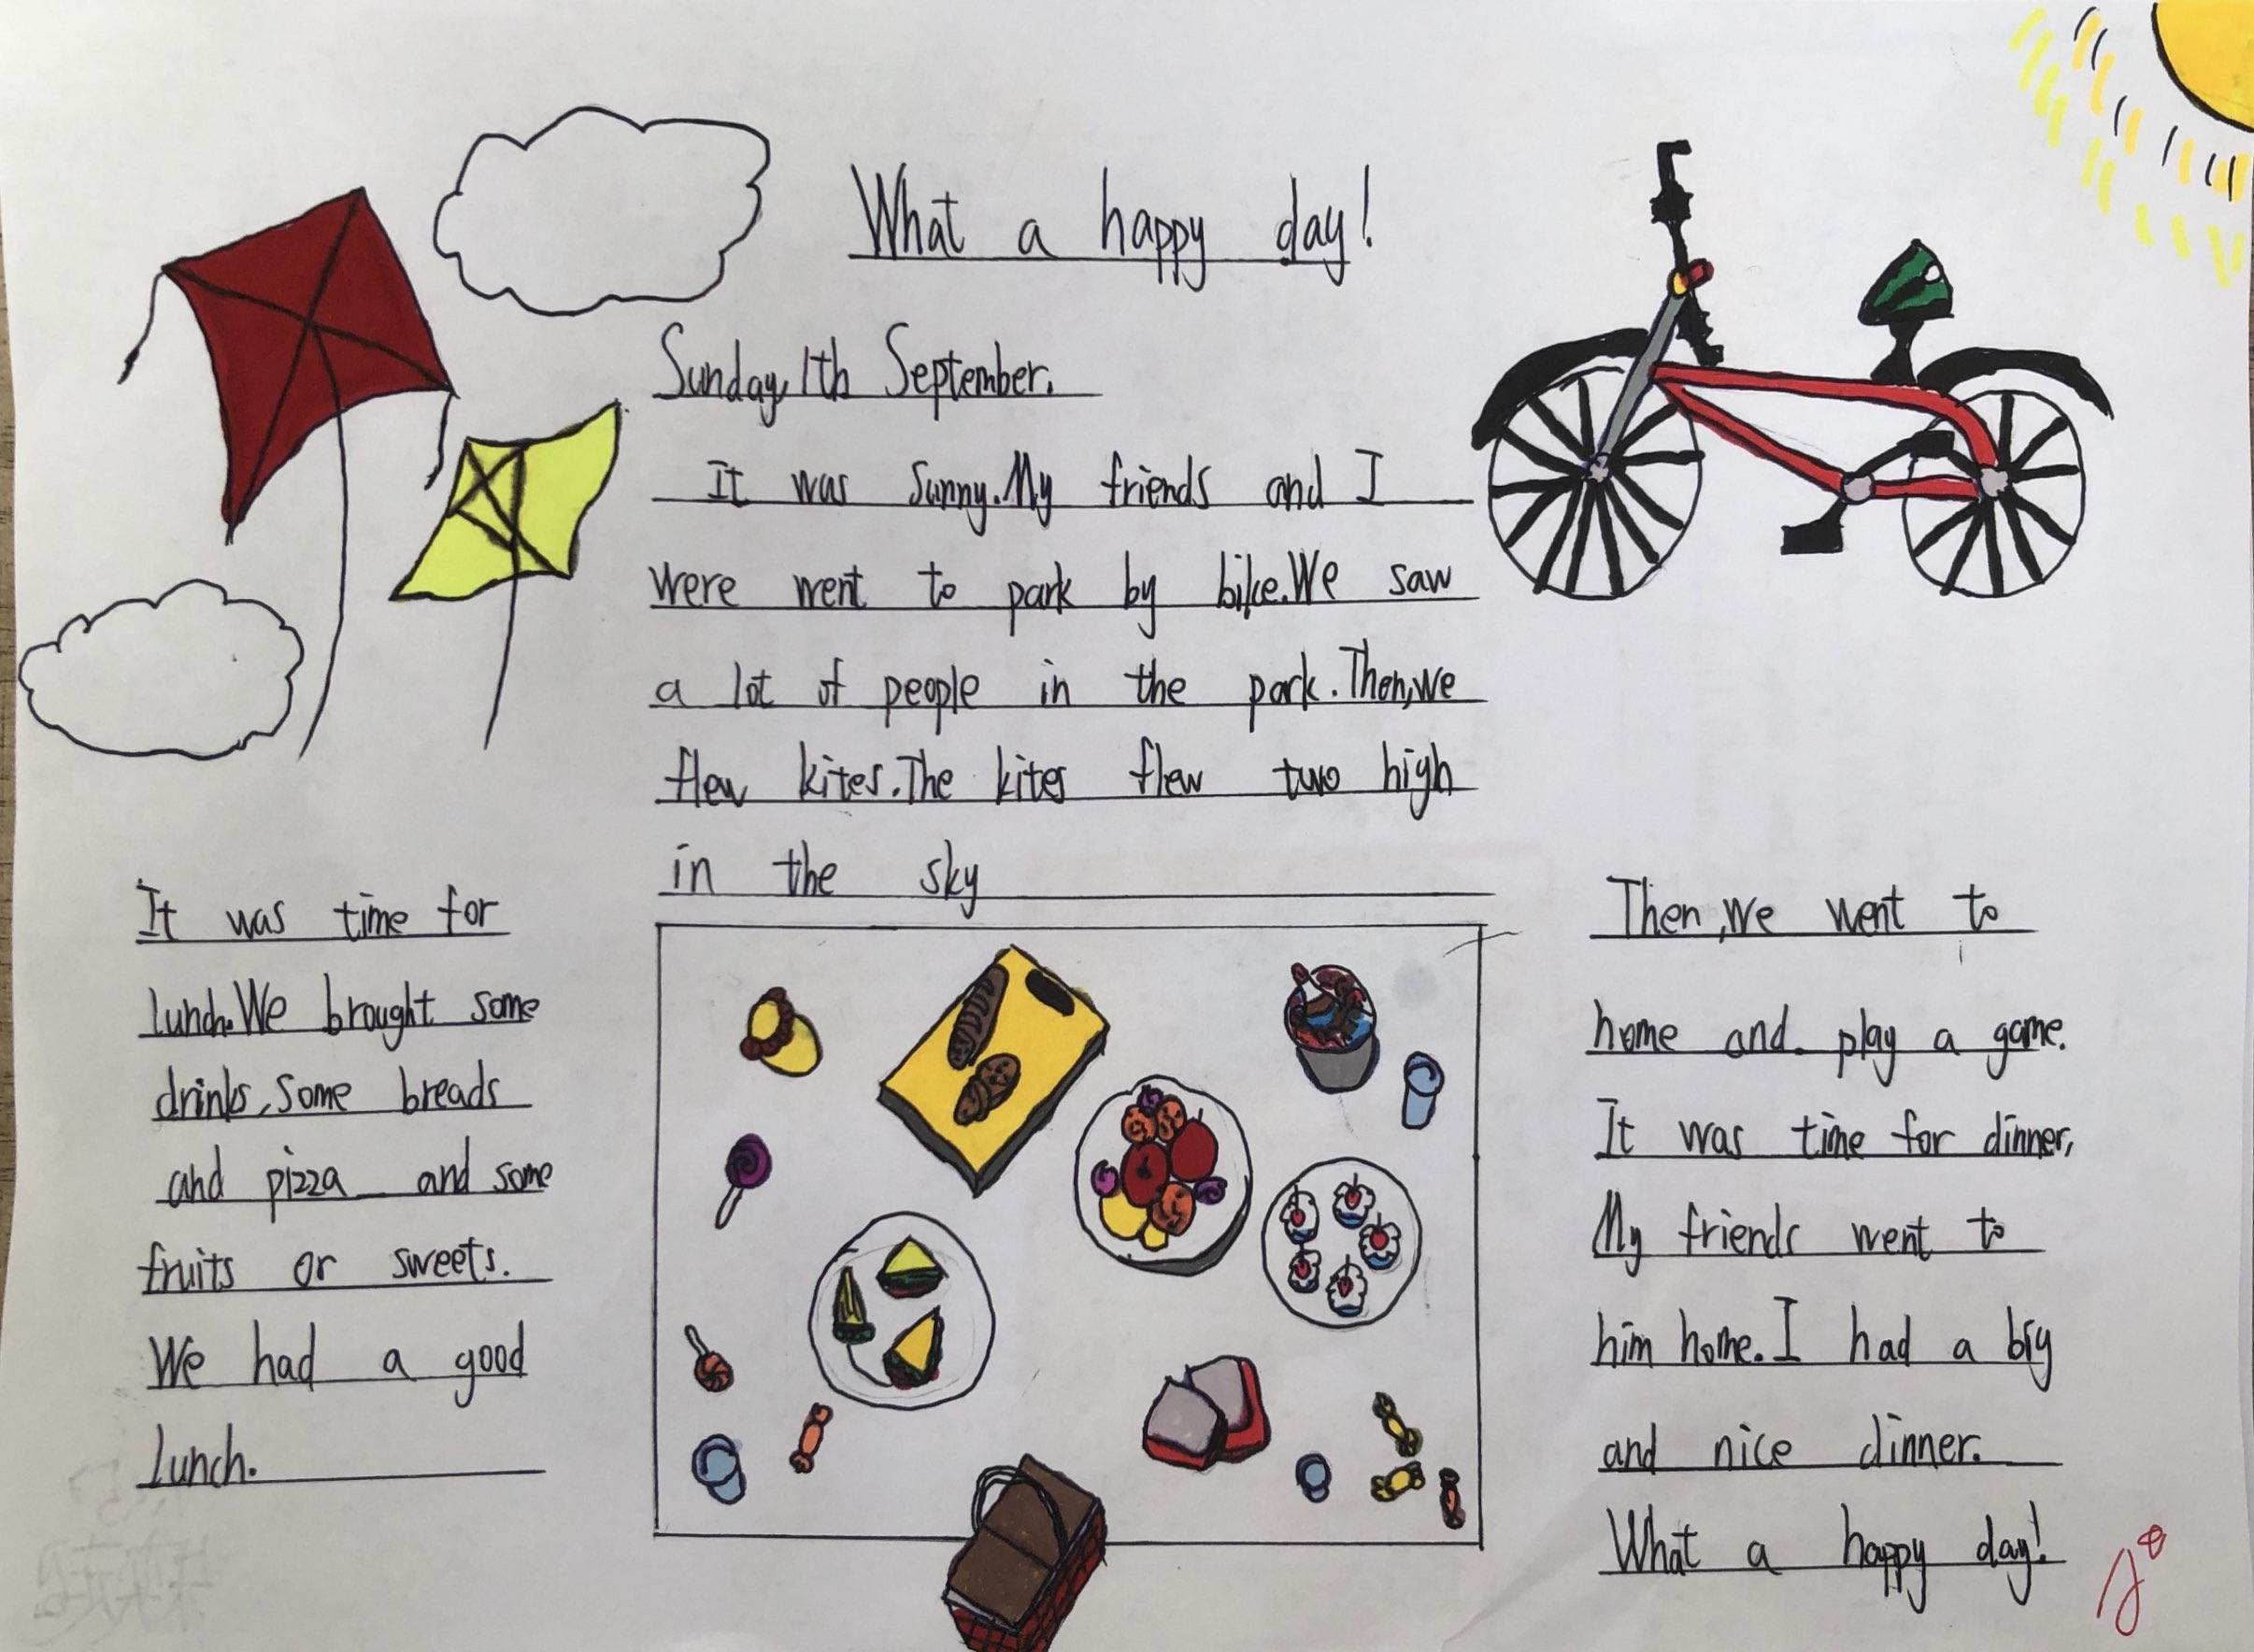 What a happy day!
Sunday, 1th September.
It was Sunny. My friends and I
were went to park by bike. We saw
a lot of people in the park. Then, we
flew kites. The kites flew two high
in the sky
It was time for
lunch. We brought some
drinks, Some breads
and pizza and some
fruits or sweets.
We had a good
lunch.
Then, we went to
home and play a game.
It was time for dinner,
My friends went to
him home. I had a big
and nice dinner.
What a happy day!